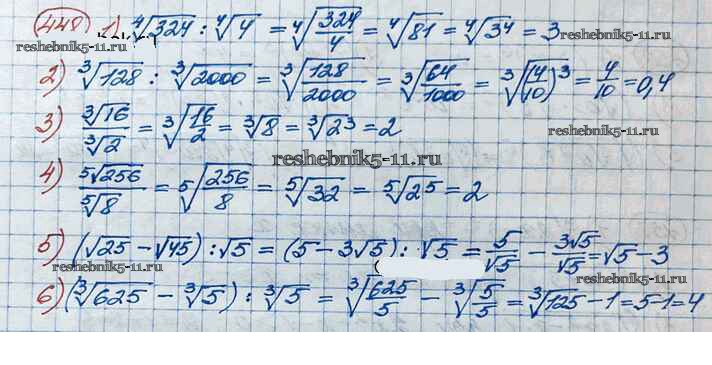 448 1) ⁴√324 : ⁴√4 = ⁴√(324/4) = ⁴√81 = ⁴√3⁴ = 3
reshebnik5-11.ru
2) ³√128 : ³√2000 = ³√(128/2000) = ³√(64/1000) = ³√(4/10)³ = 4/10 = 0,4
3) ³√16/³√2 = ³√(16/2) = ³√8 = ³√2³ = 2
reshebnik5-11.ru
reshebnik5-11.ru
4) ⁵√256/⁵√8 = ⁵√(256/8) = ⁵√32 = ⁵√2⁵ = 2
5) (√25 - √45) : √5 = (5 - 3√5) : √5 = 5/√5 - 3√5/√5 = √5 - 3
reshebnik5-11.ru
reshebnik5-11.ru
6) (³√625 - ³√5) : ³√5 = ³√(625/5) - ³√(5/5) = ³√125 - 1 = 5-1 = 4